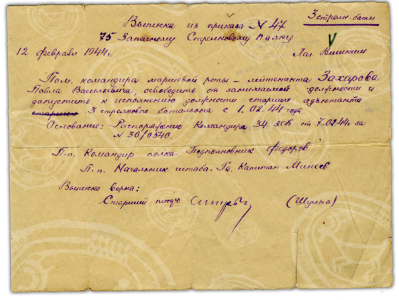 Выписка из приказа № 47
3 стрелк. батн
75 Запасному Стрелковому полку
12 февраля 1944г.
Лаг.
Пом. командира маршевой роты – лейтенанта Захарова
Павла Васильевича, освободить от занимаемой должности и
допустить к исполнению должности старшего адъютанта
3 стрелкового батальона с 1.02.44 года
Основание: Распоряжение Командира 34 ЗСД от 7.02.44г за
№ 30/0340.
П.п. Командир полка Подполковник Федоров
П.п. Начальник штаба Гв. Капитан Минеев
Выписка верна:
Старший писарь